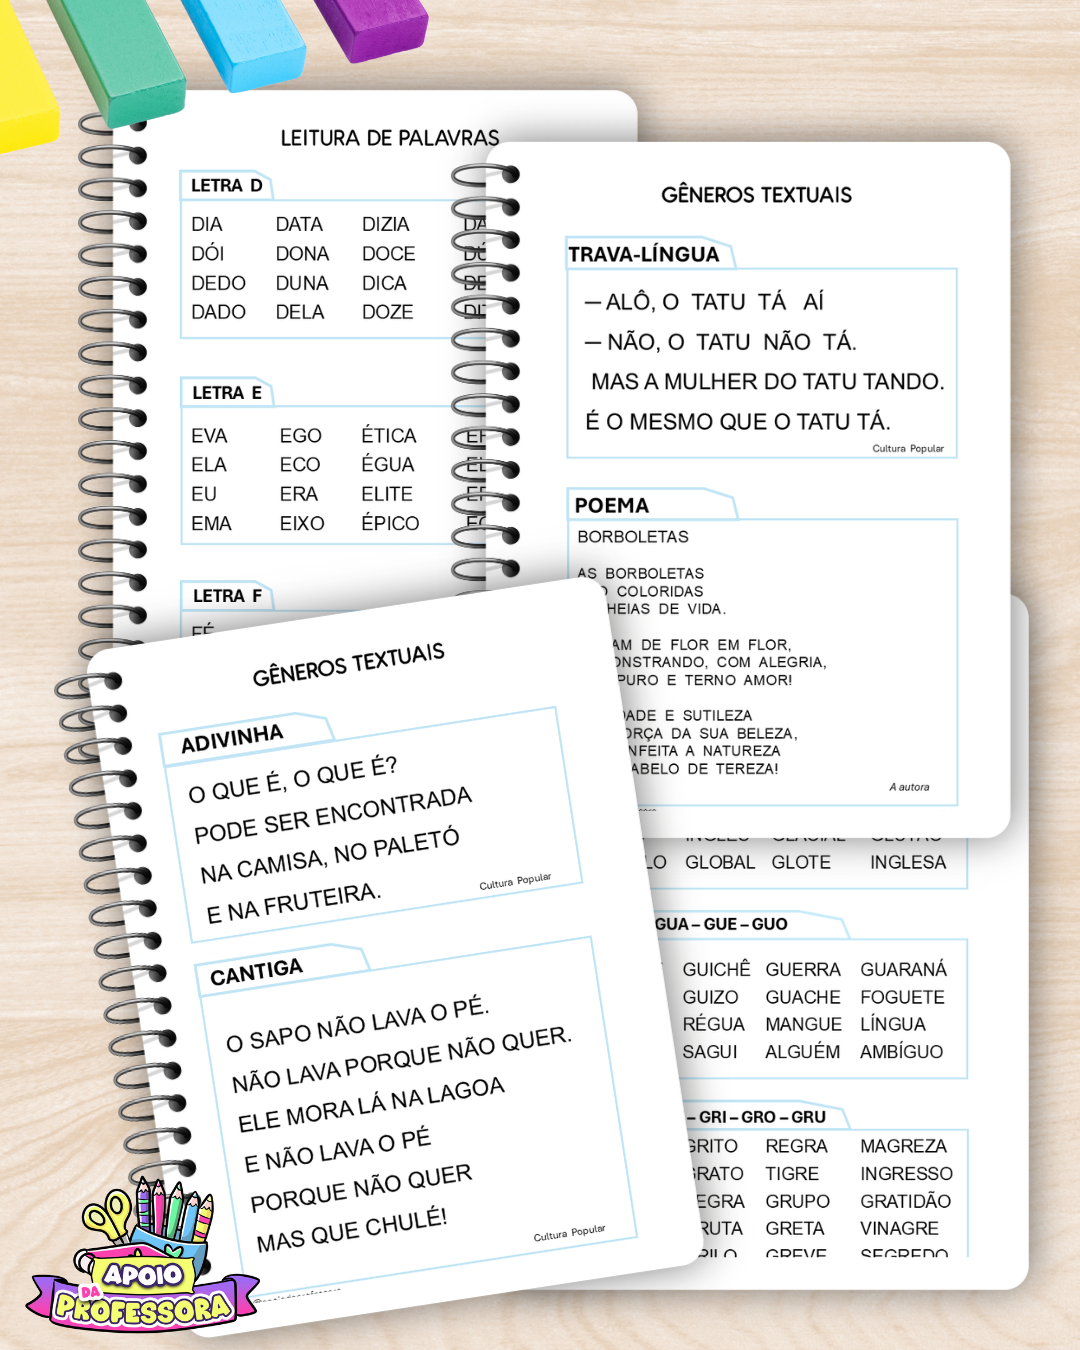 LEITURA DE PALAVRAS
LETRA D
DIA DATA DIZIA
DÓI DONA DOCE
DEDO DUNA DICA
DADO DELA DOZE
LETRA E
EVA EGO ÉTICA
ELA ECO ÉGUA
EU ERA ELITE
EMA EIXO ÉPICO
LETRA F
FÉ
GÊNEROS TEXTUAIS
TRAVA-LÍNGUA
— ALÔ, O TATU TÁ AÍ
— NÃO, O TATU NÃO TÁ.
MAS A MULHER DO TATU TANDO.
É O MESMO QUE O TATU TÁ.
Cultura Popular
POEMA
BORBOLETAS
AS BORBOLETAS
COLORIDAS
HEIAS DE VIDA.
AM DE FLOR EM FLOR,
ONSTRANDO, COM ALEGRIA,
PURO E TERNO AMOR!
DADE E SUTILEZA
ORÇA DA SUA BELEZA,
NFEITA A NATUREZA
ABELO DE TEREZA!
A autora
GÊNEROS TEXTUAIS
ADIVINHA
O QUE É, O QUE É?
PODE SER ENCONTRADA
NA CAMISA, NO PALETÓ
E NA FRUTEIRA.
Cultura Popular
CANTIGA
O SAPO NÃO LAVA O PÉ.
NÃO LAVA PORQUE NÃO QUER.
ELE MORA LÁ NA LAGOA
E NÃO LAVA O PÉ
PORQUE NÃO QUER
MAS QUE CHULÉ!
Cultura Popular
LO GLOBAL GLOTE INGLESA
GUA – GUE – GUO
GUICHÊ GUERRA GUARANÁ
GUIZO GUACHE FOGUETE
RÉGUA MANGUE LÍNGUA
SAGUI ALGUÉM AMBÍGUO
– GRI – GRO – GRU
GRITO REGRA MAGREZA
GRATO TIGRE INGRESSO
EGRA GRUPO GRATIDÃO
RUTA GRETA VINAGRE
GREVE SEGREDO
APOIO
DA
PROFESSORA